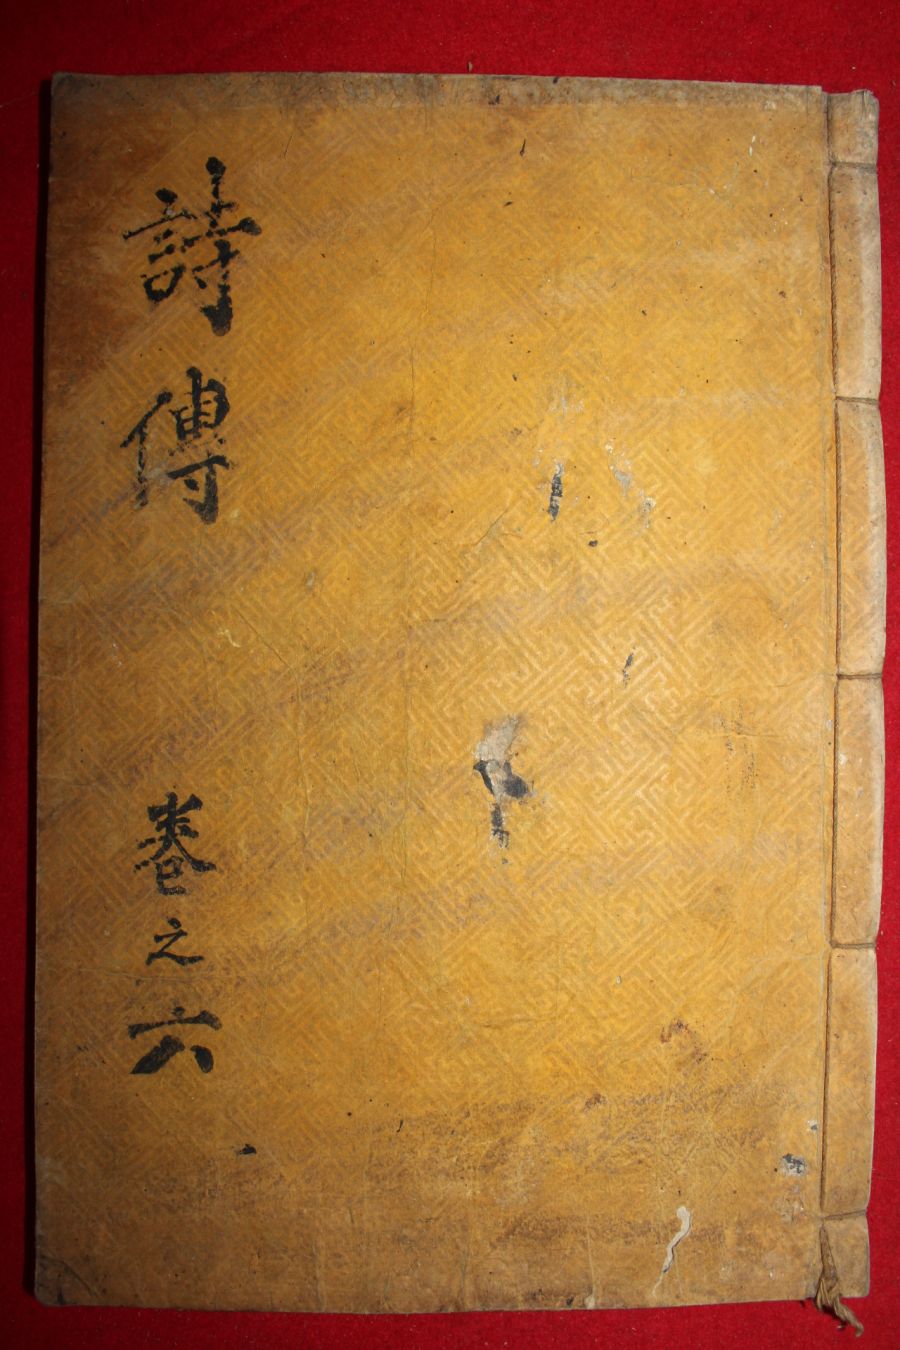 詩傳 卷之六